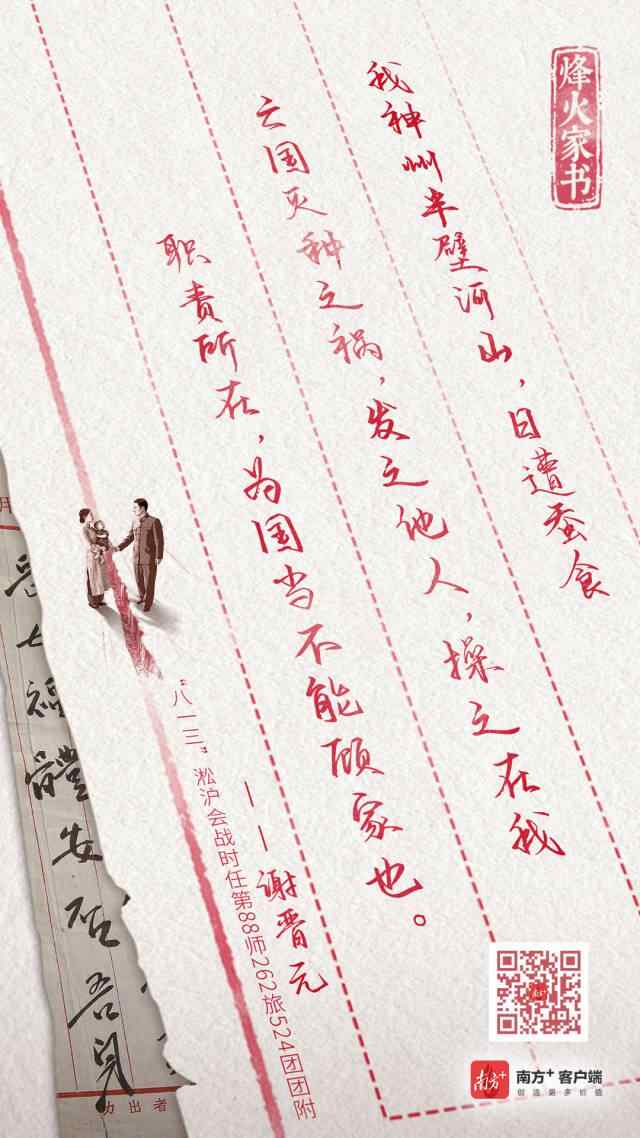 烽火家书
我神州半壁河山，日遭蚕食
亡国灭种之祸，发之他人，操之在我
职责所在，为国当不能顾家也。
——谢晋元
“八一三”淞沪会战时任第88师262旅524团团附
福體安
吾兒
力出者
南方+
南方+ 客户端
创造更多价值